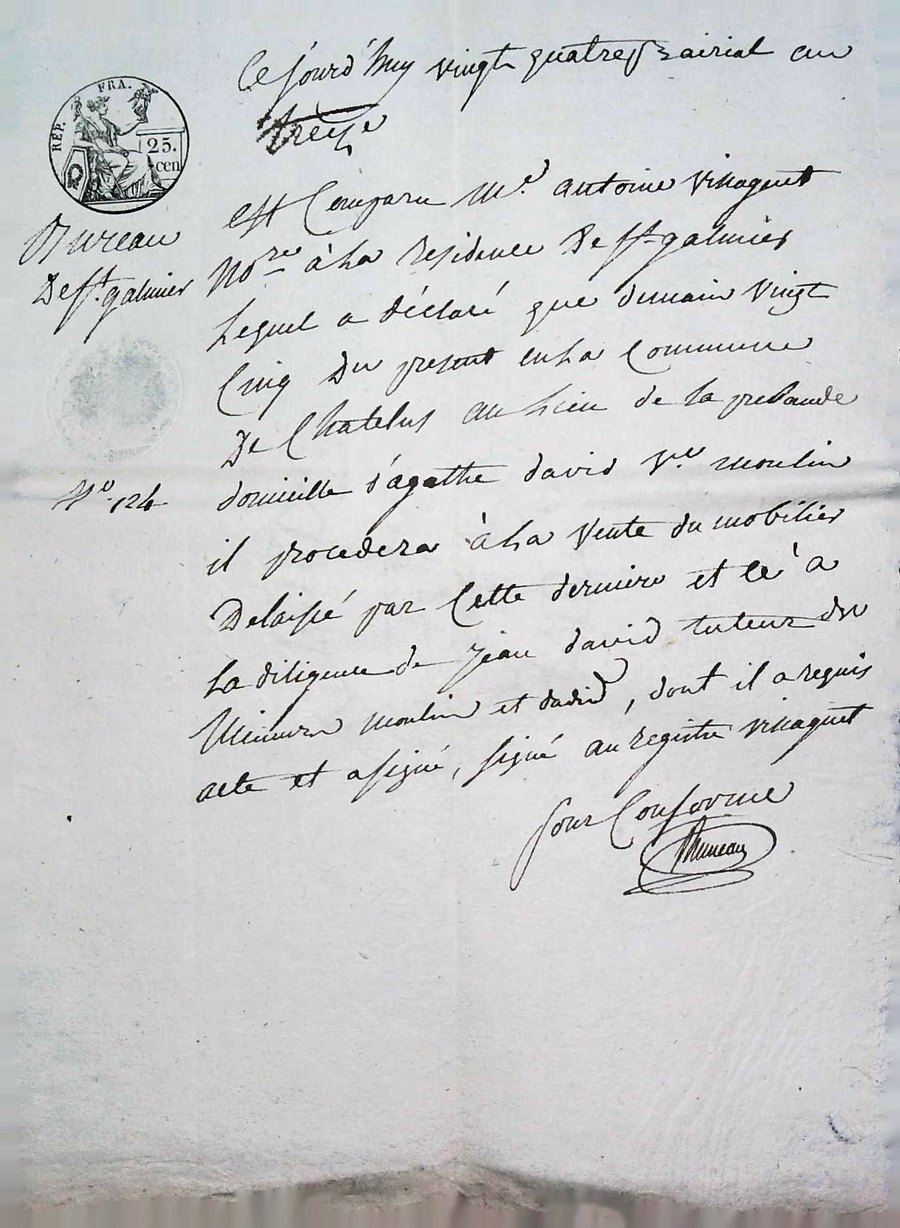 RÉP. FRA.
25.
cen
Bureau
De st. galmier
N.o 124
Ce jourd'huy vingt quatre prairial an
treize
est Comparu M.e antoine vinaguet
No.re à La residence De st. galmier
Lequel a déclaré que demain vingt
Cinq Du present en La Commune
De Chatelus au Lieu de la prebande
domicille d'agathe david v.ve moulin
il procedera à La vente du mobilier
Delaissé par Cette derniere et ce a
La diligence de jean david tuteur des
Mineurs moulin et david, dont il a requis
acte et a signé, signé au registre vinaguet
pour Conforme